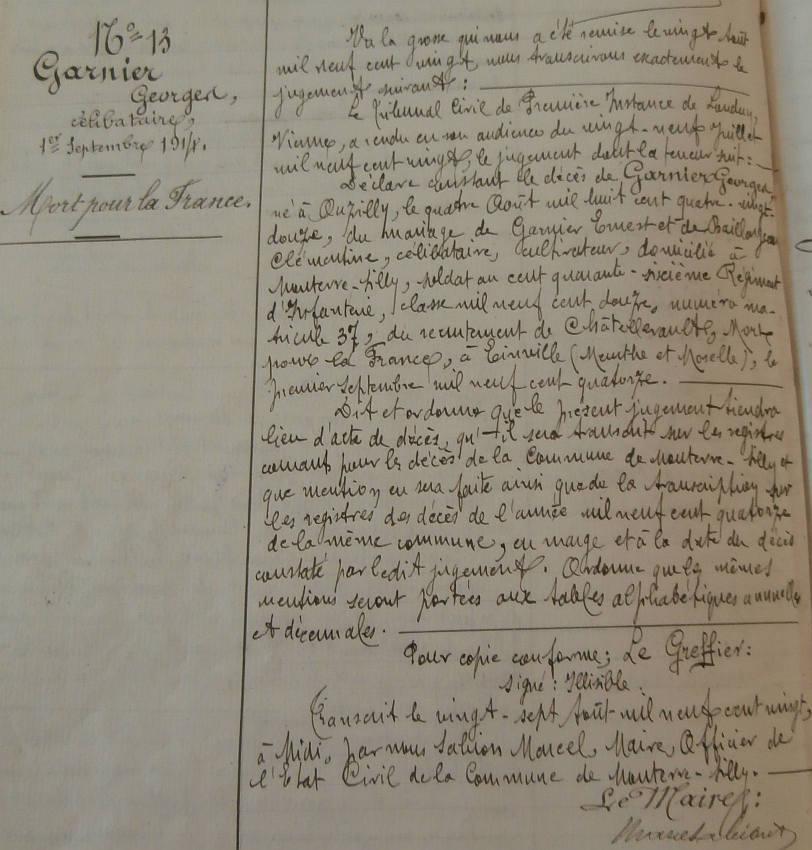 N° 13
Garnier
Georges,
célibataire,
1er Septembre 1914.
Mort pour la France.
Vu la grosse qui nous a été remise le vingt Août
mil neuf cent vingt, nous transcrivons exactement le
jugement suivant :
Le Tribunal Civil de Première Instance de Loudun,
Vienne, a rendu en son audience du vingt-neuf Juillet
mil neuf cent vingt, le jugement dont la teneur suit :
Déclare constant le décès de Garnier Georges
né à Ouzilly, le quatre Août mil huit cent quatre-vingt-
douze, du mariage de Garnier Ernest et de Baillargeau
Clémentine, célibataire, cultivateur, domicilié à
Mouterre-Silly, soldat au cent quarante-sixième Régiment
d'Infanterie, classe mil neuf cent douze, numéro ma-
tricule 37, du recrutement de Châtellerault, Mort
pour la France, à Einville (Meurthe et Moselle), le
premier Septembre mil neuf cent quatorze.
Dit et ordonne que le présent jugement tiendra
lieu d'acte de décès, qu'il sera transcrit sur les registres
courants pour les décès de la Commune de Mouterre-Silly et
que mention en sera faite ainsi que de la transcription sur
les registres des décès de l'année mil neuf cent quatorze
de la même commune, en marge et à la date du décès
constaté par ledit jugement. Ordonne que les mêmes
mentions seront portées aux tables alphabétiques annuelles
et décennales.
Pour copie conforme ; Le Greffier :
Signé : Illisible.
Transcrit le vingt-sept Août mil neuf cent vingt,
à Midi, par nous Marcel, Maire, Officier de
l'Etat Civil de la Commune de Mouterre-Silly.
Le Maire :